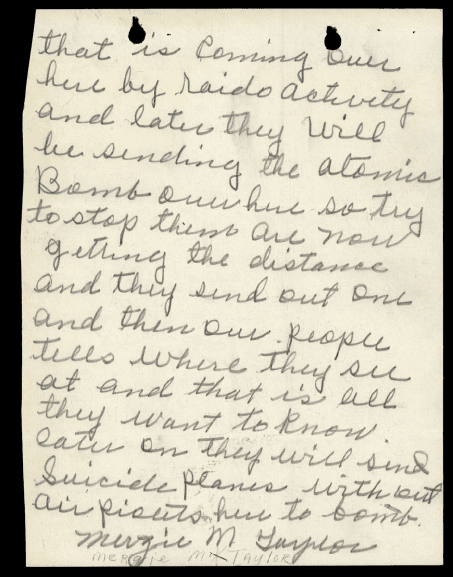 that is Coming Over
here by raido activity
and later they will
be sending the atomic
Bomb over here so try
to stop them are now
getting the distance
and they send out one
and then our people
tells where they see
at and that is all
they want to know.
later on they will send
Suicide planes with out
air piolets here to bomb.
Mergie M Taylor
mergie M Taylor